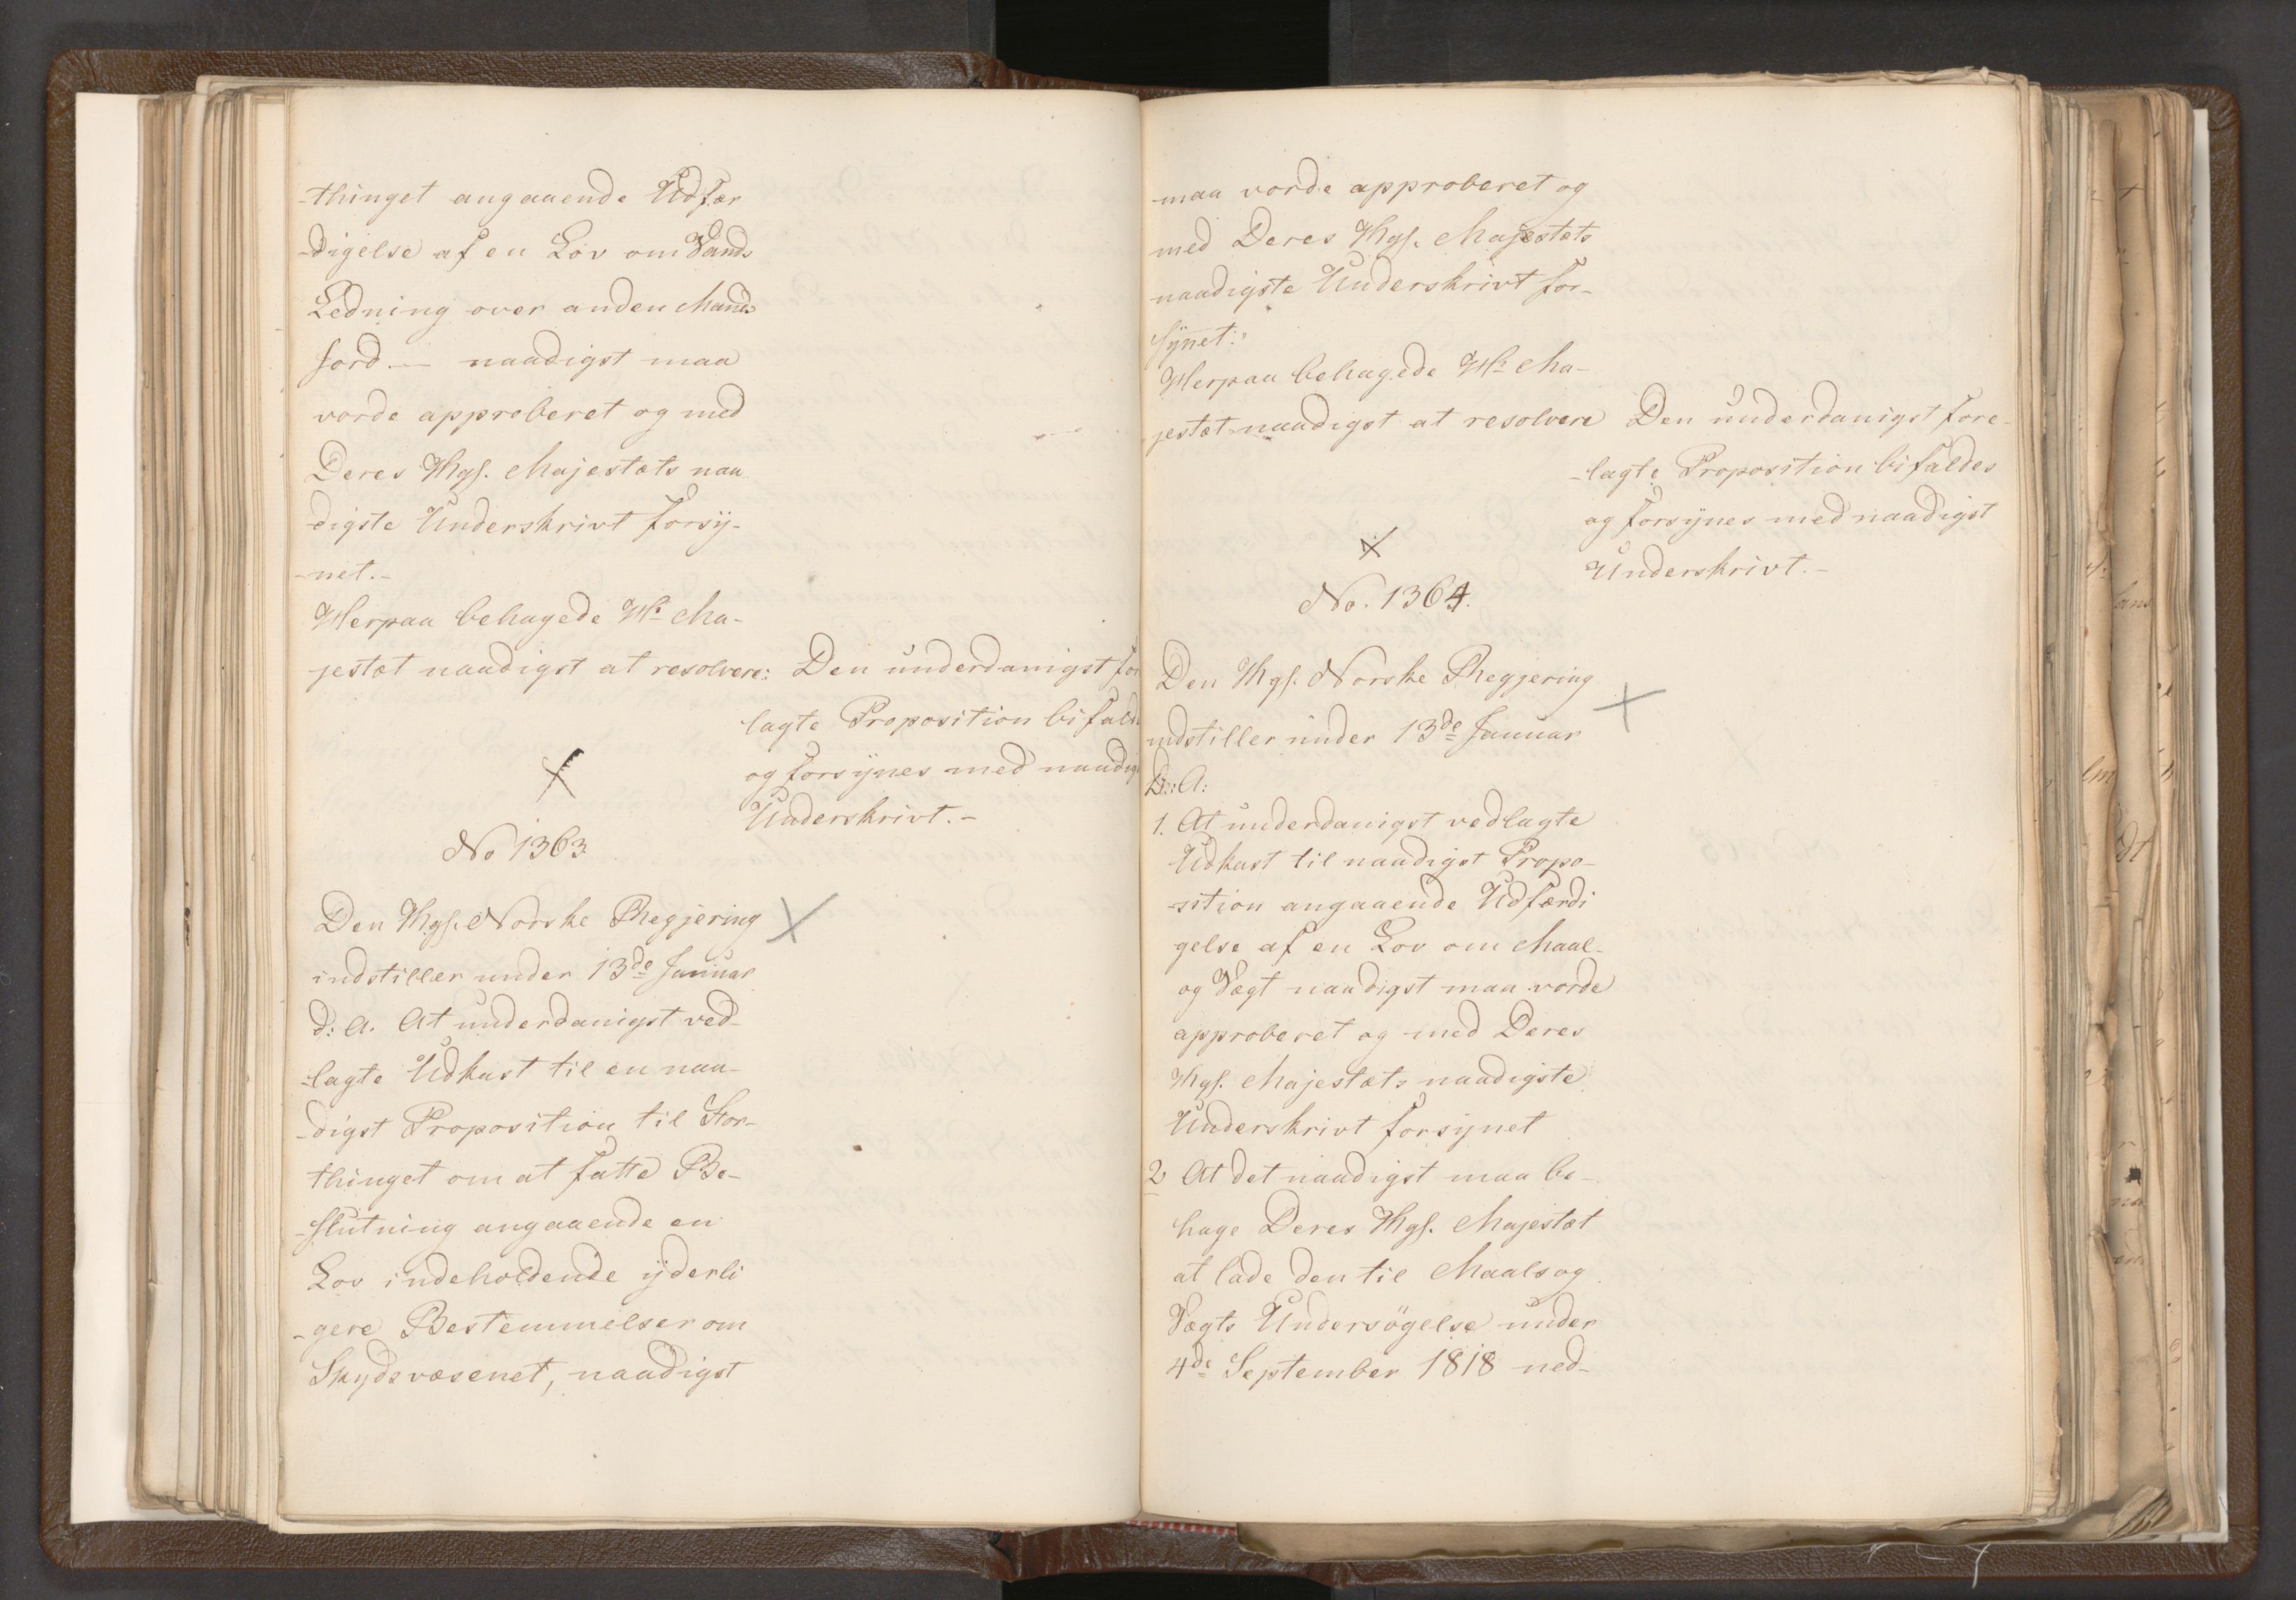 -thinget angaaende Udfær
-digelse af en Lov om Vands
Ledning over anden Mands
Jord. — naadigst maa
vorde approberet og med
Deres Kgl. Majestæts naa
digste Underskrivt forsÿ-
-net.-
Herpaa behagede Hs Ma-
jestæt naadigst at resolvere: Den underdanigst for
lagte Proposition bifald
og forsÿnes med naadig
Underskrivt.-
No 1363
Den Kgl. Norske Regjering
indstiller under 13de Januar
d: A. At underdanigst ved-
-lagte Udkast til en naa-
-digst Proposition til Stor-
thinget om at fatte Be-
-slutning angaaende en
Lov indeholdende ÿderli
-gere Bestemmelser om
Skydsvæsenet, naadigst
maa vorde approberet og
med Deres Kgl. Majestæts
naadigste Underskrivt for-
sÿnet:
Herpaa behagede Hs Ma-
jestæt naadigst at resolvere Den underdanigst fore-
-lagte Proposition bifaldes
og forsÿnes med naadigst
Underskrivt.-
No. 1364.
Den Kgl. Norske Regjering
indstiller under 13de Januar
D: A:
1. At underdanigst vedlagte
Udkast til naadigst Propo-
-sition angaaende Udfærdi
gelse af en Lov om Maal-
og Vægt naadigst maa vorde
approberet og med Deres
Kgl. Majestæts naadigste
Underskrivt forsynet
2 At det naadigst maa be-
hage Deres Kgl. Majestæt
at lade den til Maals og
Vægts Undersögelse under
4de September 1818 ned-